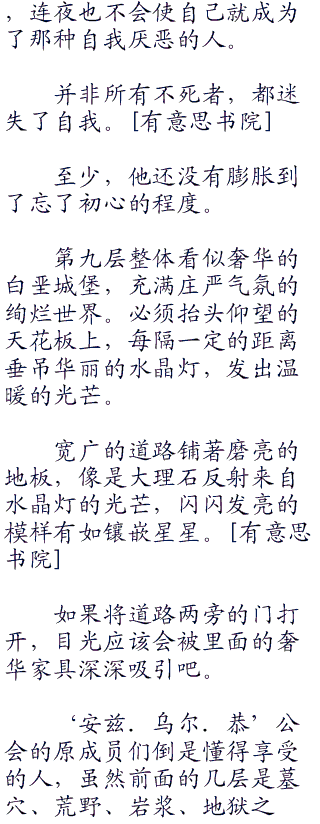 ，连夜也不会使自己就成为
了那种自我厌恶的人。
并非所有不死者，都迷
失了自我。[有意思书院]
至少，他还没有膨胀到
了忘了初心的程度。
第九层整体看似奢华的
白垩城堡，充满庄严气氛的
绚烂世界。必须抬头仰望的
天花板上，每隔一定的距离
垂吊华丽的水晶灯，发出温
暖的光芒。
宽广的道路铺著磨亮的
地板，像是大理石反射来自
水晶灯的光芒，闪闪发亮的
模样有如镶嵌星星。[有意思
书院]
如果将道路两旁的门打
开，目光应该会被里面的奢
华家具深深吸引吧。
‘安兹．乌尔．恭’公
会的原成员们倒是懂得享受
的人，虽然前面的几层是墓
穴、荒野、岩浆、地狱之